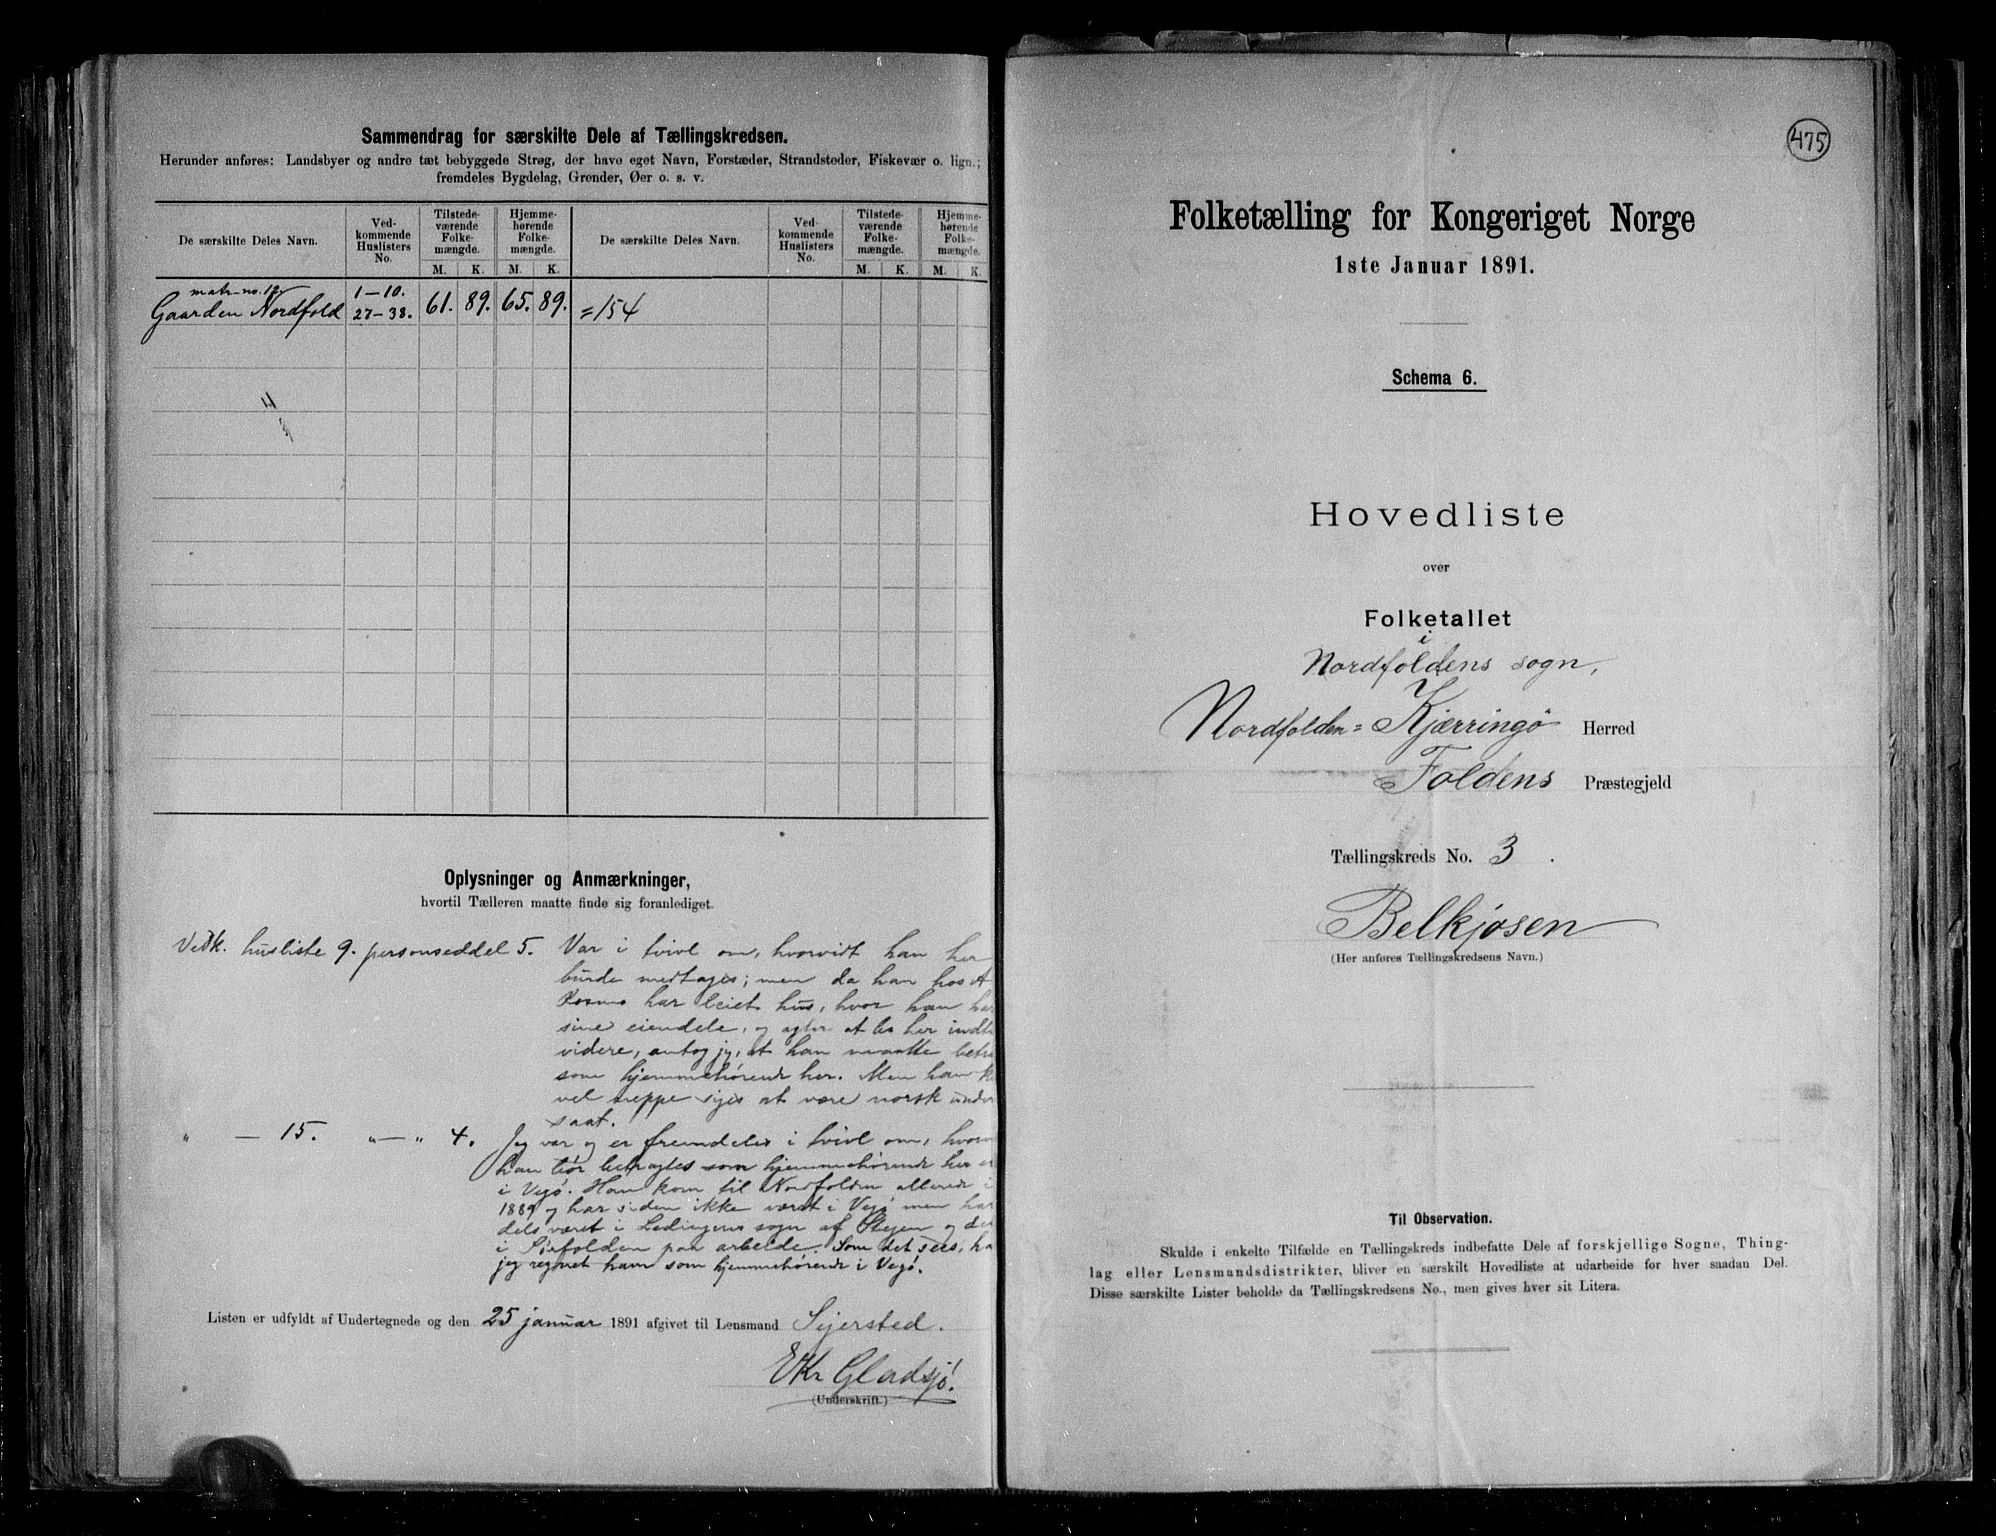 Sammendrag for særskilte Dele af Tællingskredsen.
Herunder anføres: Landsbyer og andre tæt bebyggede Strøg, der have eget Navn, Forstæder, Strandsteder, Fiskevær o. lign.;
fremdeles Bygdelag, Grender, Øer o. s. v.
De særskilte Deles Navn. Ved-kommende Huslisters No. Tilstede-værende Folke-mængde. Hjemme-hørende Folke-mængde. De særskilte Deles Navn. Ved-kommende Huslisters No. Tilstede-værende Folke-mængde. Hjemme-hørende Folke-mængde.
M. K. M. K. M. K. M. K.
matr-no. 12 1–10.
Gaarden Nordfold 27–38. 61. 89. 65. 89. =154
Oplysninger og Anmærkninger,
hvortil Tælleren maatte finde sig foranlediget.
Vedk. husliste 9. personseddel 5. Var i tvivl om, hvorvidt han her
burde medtages; men da han hos A
har leiet hus, hvor han har
sine eiendele, og agter at bo her indtil
videre, antog jeg, at han maatte betra
som hjemmehørende her. Men han k
vel neppe siges at være norsk under
saat.
" — 15. "—" 4. Jeg var og er fremdeles i tvivl om, hvorv
han bør betragtes som hjemmehørende her e
i Vegø. Han kom til Nordfolden allerede i
1889 og har siden ikke været i Vegø men har
dels været i Lødingens sogn af Stejen og de
i Sørfolden paa arbeide. Som det sees, ha
jeg regnet ham som hjemmehørende i Vegø.
Listen er udfyldt af Undertegnede og den 25 januar 1891 afgivet til Lensmand Sejersted.
EKr Gladsjø.
(Underskrift.)
475
Folketælling for Kongeriget Norge
1ste Januar 1891.
Schema 6.
Hovedliste
over
Folketallet
i
Nordfoldens sogn,
Nordfolden=Kjærringø Herred
Foldens Præstegjeld
Tællingskreds No. 3.
Belkjosen
(Her anføres Tællingskredsens Navn.)
Til Observation.
Skulde i enkelte Tilfælde en Tællingskreds indbefatte Dele af forskjellige Sogne, Thing-
lag eller Lensmandsdistrikter, bliver en særskilt Hovedliste at udarbeide for hver saadan Del.
Disse særskilte Lister beholde da Tællingskredsens No., men gives hver sit Litera.